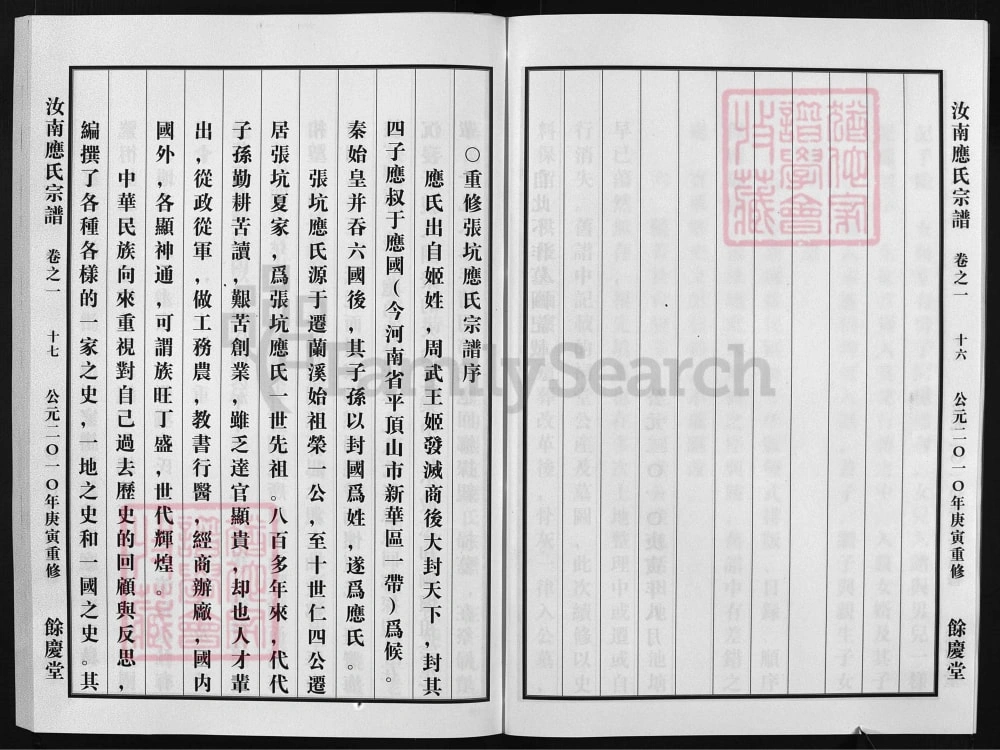 汝南應氏宗譜 卷之一 十六 公元二〇一〇年庚寅重修 餘慶堂
〇重修張坑應氏宗譜序
應氏出自姬姓,周武王姬發滅商後大封天下,封其
四子應叔于應國(今河南省平頂山市新華區一帶)爲候。
秦始皇并吞六國後,其子孫以封國爲姓,遂爲應氏。
張坑應氏源于遷蘭溪始祖榮一公,至十世仁四公遷
居張坑夏家,爲張坑應氏一世先祖。八百多年來,代代
子孫勤耕苦讀,艱苦創業,雖乏達官顯貴,却也人才輩
出,從政從軍,做工務農,教書行醫,經商辦廠,國内
國外,各顯神通,可謂族旺丁盛,世代輝煌。
中華民族向來重視對自己過去歷史的回顧與反思,
編撰了各種各樣的一家之史,一地之史和一國之史。其
汝南應氏宗譜 卷之一 十七 公元二〇一〇年庚寅重修 餘慶堂
FamilySearch